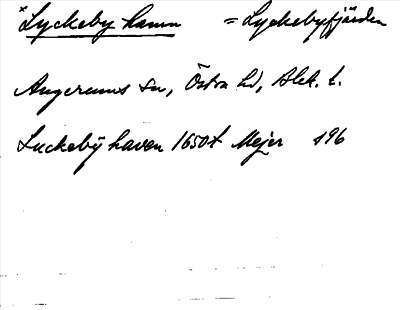 *Lyckeby hamn = Lyckebyfjärden
Augerums sn, Östra hd, Blek. l.
Luckebÿ haven 1650t Mejer 196